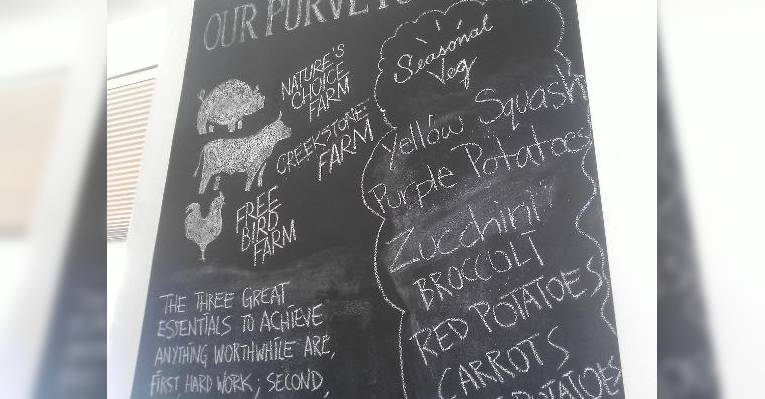 OUR PURVEYO
NATURE'S
CHOICE
FARM
CREEKSTONE
FARM
FREE
BIRD
FARM
THE THREE GREAT
ESSENTIALS TO ACHIEVE
ANYTHING WORTHWHILE ARE,
FIRST, HARD WORK; SECOND,
Seasonal
Veg
Yellow Squash
Purple Potatoes
Zucchini
BROCCOLI
RED POTATOES
CARROTS
POTATOES